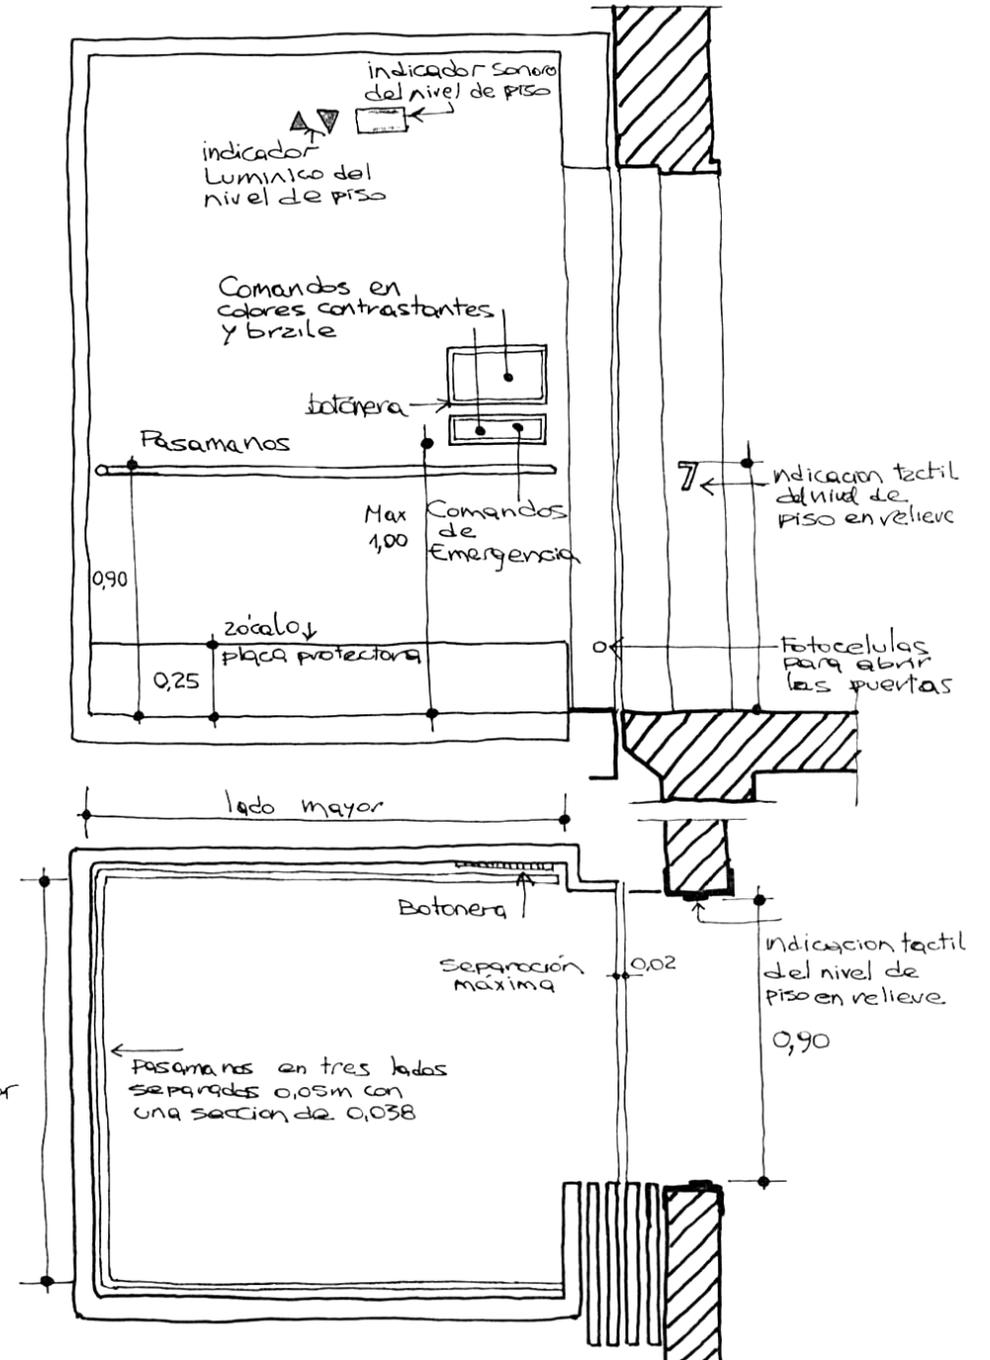 indicador sonoro
del nivel de piso
indicador
Luminico del
nivel de piso
Comandos en
colores contrastantes
y braile
botonera
Pasamanos
7
indicacion tactil
del nivel de
piso en relieve
Max
1,00
Comandos
de
Emergencia
0,90
zócalo
placa protectora
0,25
Fotocelulas
para abrir
las puertas
lado mayor
Botonera
separación
máxima
0,02
indicacion tactil
del nivel de
piso en relieve
0,90
pasamanos en tres lados
separados 0,05m con
una seccion de 0,038